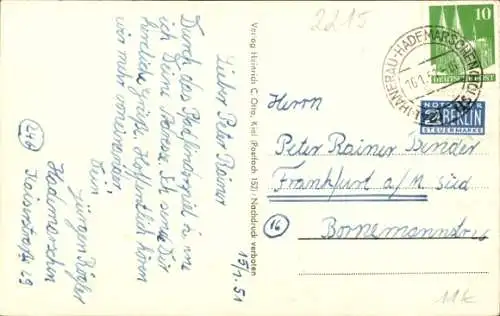 2215
15/1.51
Lieber Peter Rainer
Durch das Pfadfinderspiel in uns
ich Deine Adresse. Ich sende Dir
herzliche Grüße. Hoffentlich hören
wir mehr voneinander
Dein
Jürgen
Hademarschen
Kaiserstraße 29
(24b)
Verlag Heinrich C. Otto, Kiel (Postfach 152) · Nachdruck verboten
HANERAU-HADEMARSCHEN
10
DEUTSCHE POST
NOTOPFER
2 BERLIN
STEUERMARKE
Herrn
Peter Rainer Bender
Frankfurt a/M Süd
(16)
Bornemannstr
11k